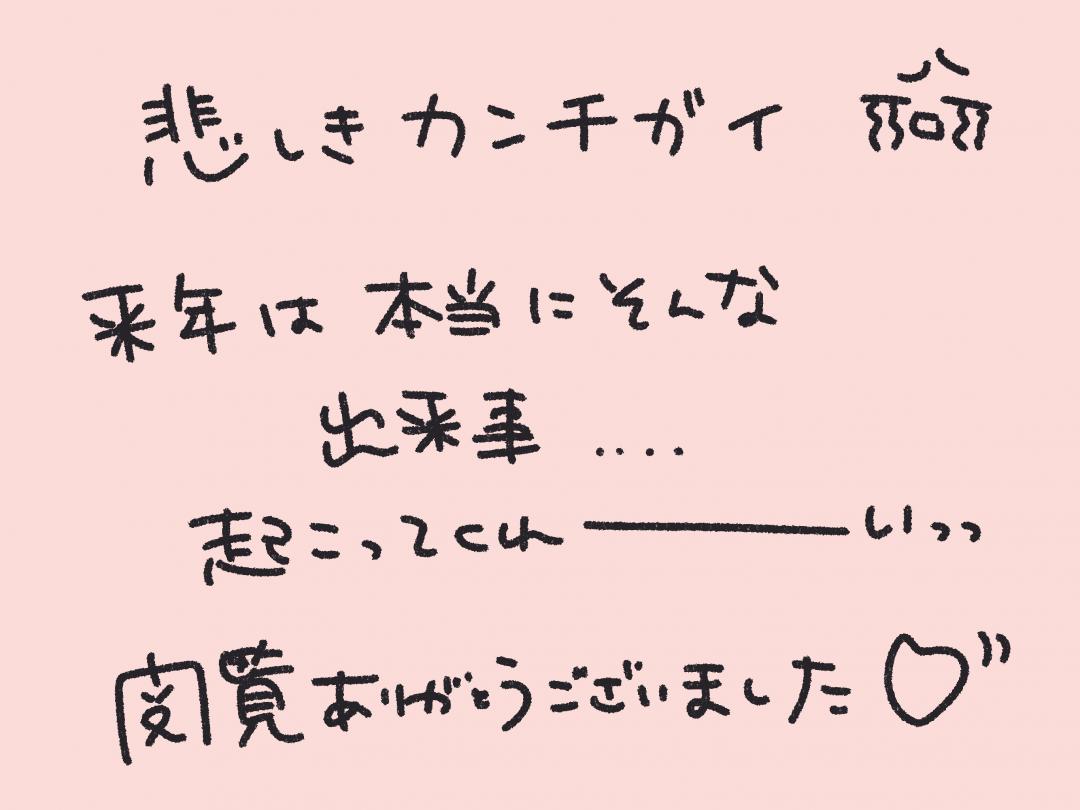 悲しきカンチガイ
来年は本当にそんな
出来事....
起こってくれ―――いっっ
閲覧ありがとうございました♡"